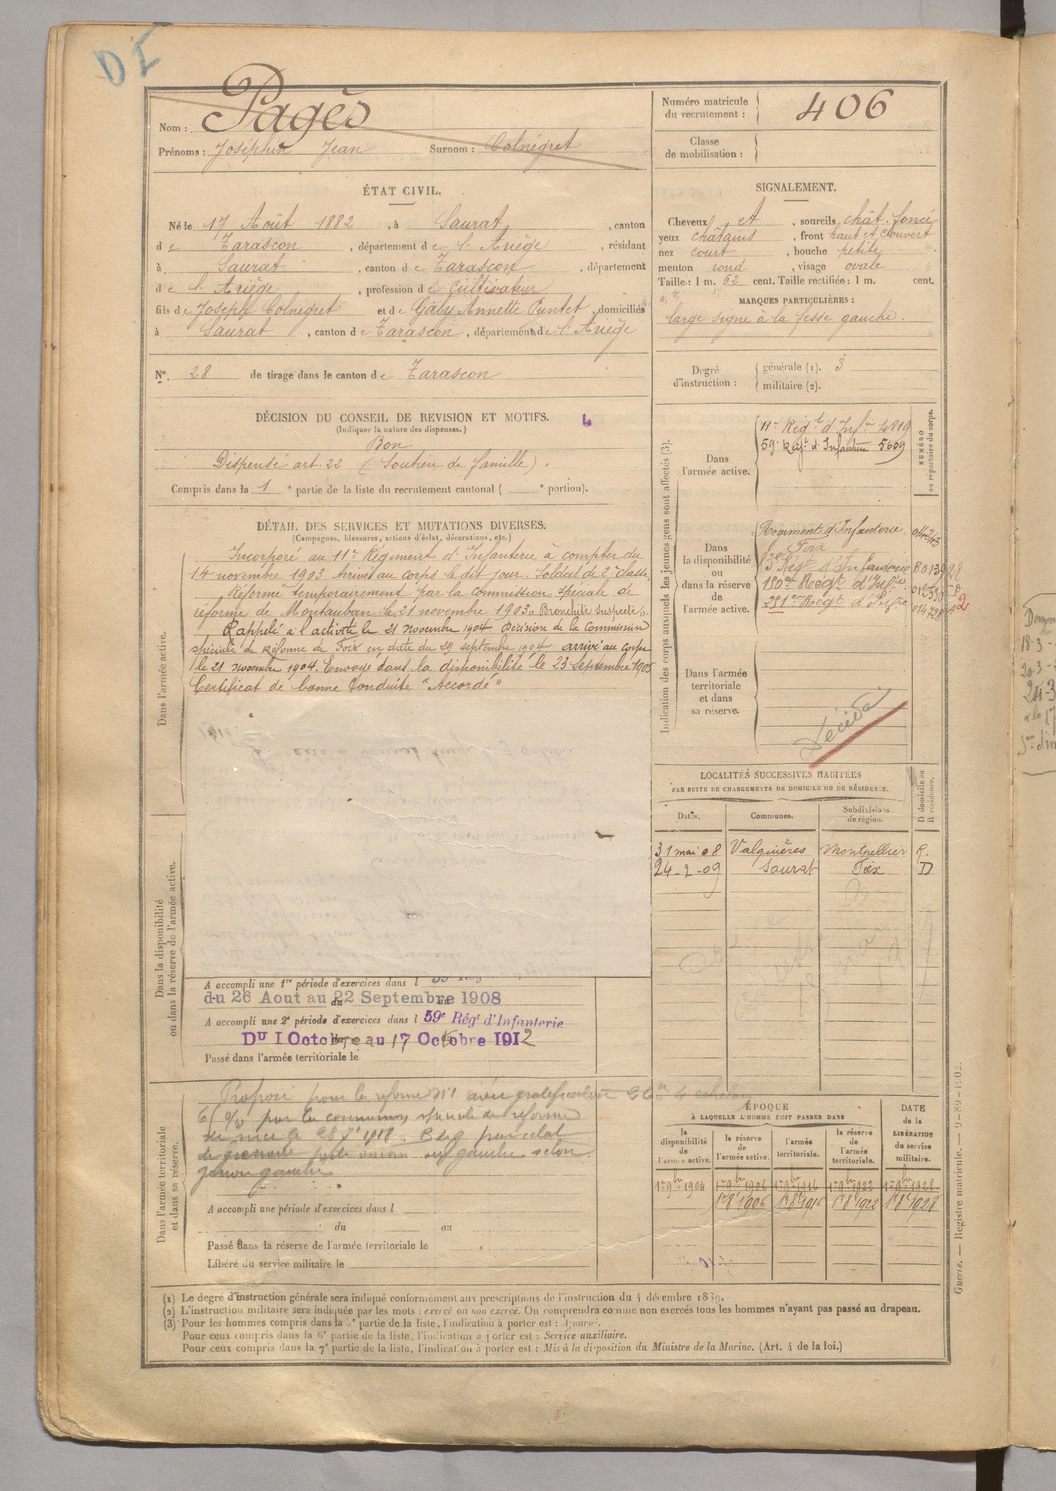 DI
Nom : Pagès
Prénoms : Joséphin Jean Surnom : Colnégret
Numéro matricule du recrutement : 406
Classe de mobilisation :
ÉTAT CIVIL.
Né le 17 Août 1882, à Saurat, canton
de Tarascon, département de l'Ariège, résidant
à Saurat, canton de Tarascon, département
de l'Ariège, profession de Cultivateur
fils de Joseph Colnégret et de Gaby Annette Puntet, domiciliés
à Saurat, canton de Tarascon, département de l'Ariège
N°. 28 de tirage dans le canton de Tarascon
SIGNALEMENT.
Cheveux et, sourcils chât. foncé
yeux châtains, front haut et couvert
nez court, bouche petite
menton rond, visage ovale
Taille : 1 m. 62 cent. Taille rectifiée : 1 m. cent.
MARQUES PARTICULIÈRES :
large signe à la fesse gauche.
Degré d'instruction : générale (1). 3
militaire (2).
DÉCISION DU CONSEIL DE REVISION ET MOTIFS.
(Indiquer la nature des dispenses.)
Bon
Dispensé art. 22 (Soutien de famille).
Compris dans la 1e partie de la liste du recrutement cantonal ( e portion).
DÉTAIL DES SERVICES ET MUTATIONS DIVERSES.
(Campagnes, blessures, actions d'éclat, décorations, etc.)
Dans l'armée active.
Incorporé au 11e Régiment d'Infanterie à compter du
14 novembre 1903. Arrivé au corps le dit jour. Soldat de 2e classe.
Réformé temporairement par la Commission spéciale de
réforme de Montauban le 21 novembre 1903
Rappelé à l'activité le 21 novembre 1904 Décision de la Commission
spéciale de Réforme de Foix en date du 29 septembre 1904 arrivé au corps
le 21 novembre 1904. Envoyé dans la disponibilité le 23 Septembre 1905
Certificat de bonne Conduite "Accordé"
Indication des corps auxquels les jeunes gens sont affectés (3).
NUMÉRO au répertoire du corps.
Dans l'armée active.
11e Régt d'Infie 4819
59e Régt d'Infanterie 5609
Dans la disponibilité ou dans la réserve de l'armée active.
Régiment d'Infanterie
Foix
Regt d'Infanterie
Regt d'Infie
Regt d'Infie
Dans l'armée territoriale et dans sa réserve.
Décédé
LOCALITÉS SUCCESSIVES HABITÉES
PAR SUITE DE CHANGEMENTS DE DOMICILE OU DE RÉSIDENCE.
Dates. Communes. Subdivisions de région. D domicile ou R résidence.
31 mai 08 Valquières Montpellier R.
24-2-09 Saurat Foix D
Dans la disponibilité ou dans la réserve de l'armée active.
A accompli une 1re période d'exercices dans l
du 26 Aout au 22 Septembre 1908
A accompli une 2e période d'exercices dans l 59e Régt d'Infanterie
Du 1 Octobre au 17 Octobre 1912
Passé dans l'armée territoriale le
Dans l'armée territoriale et dans sa réserve.
Proposé pour la réforme n°1 avec gratification
par la commission spéciale de réforme
de
genou gauche
A accompli une période d'exercices dans l
du au
Passé dans la réserve de l'armée territoriale le
Libéré du service militaire le
ÉPOQUE
À LAQUELLE L'HOMME DOIT PASSER DANS
la disponibilité de l'armée active.
la réserve de l'armée active.
l'armée territoriale.
la réserve de l'armée territoriale.
DATE de la LIBÉRATION du service militaire.
1er 9bre 1904 1er 9bre 1906 1er 9bre 1916 1er 9bre 1922 1er 9bre 1928
1er 8bre 1906 1er 8bre 1916 1er 8bre 1922 1er 8bre 1928
(1) Le degré d'instruction générale sera indiqué conformément aux prescriptions de l'instruction du 4 décembre 1889.
(2) L'instruction militaire sera indiquée par les mots : exercé ou non exercé. On comprendra comme non exercés tous les hommes n'ayant pas passé au drapeau.
(3) Pour les hommes compris dans la 5e partie de la liste, l'indication à porter est : Ajourné.
Pour ceux compris dans la 6e partie de la liste, l'indication à porter est : Service auxiliaire.
Pour ceux compris dans la 7e partie de la liste, l'indication à porter est : Mis à la disposition du Ministre de la Marine. (Art. 4 de la loi.)
Guerre. — Registre matricule. — 9-89-1902.